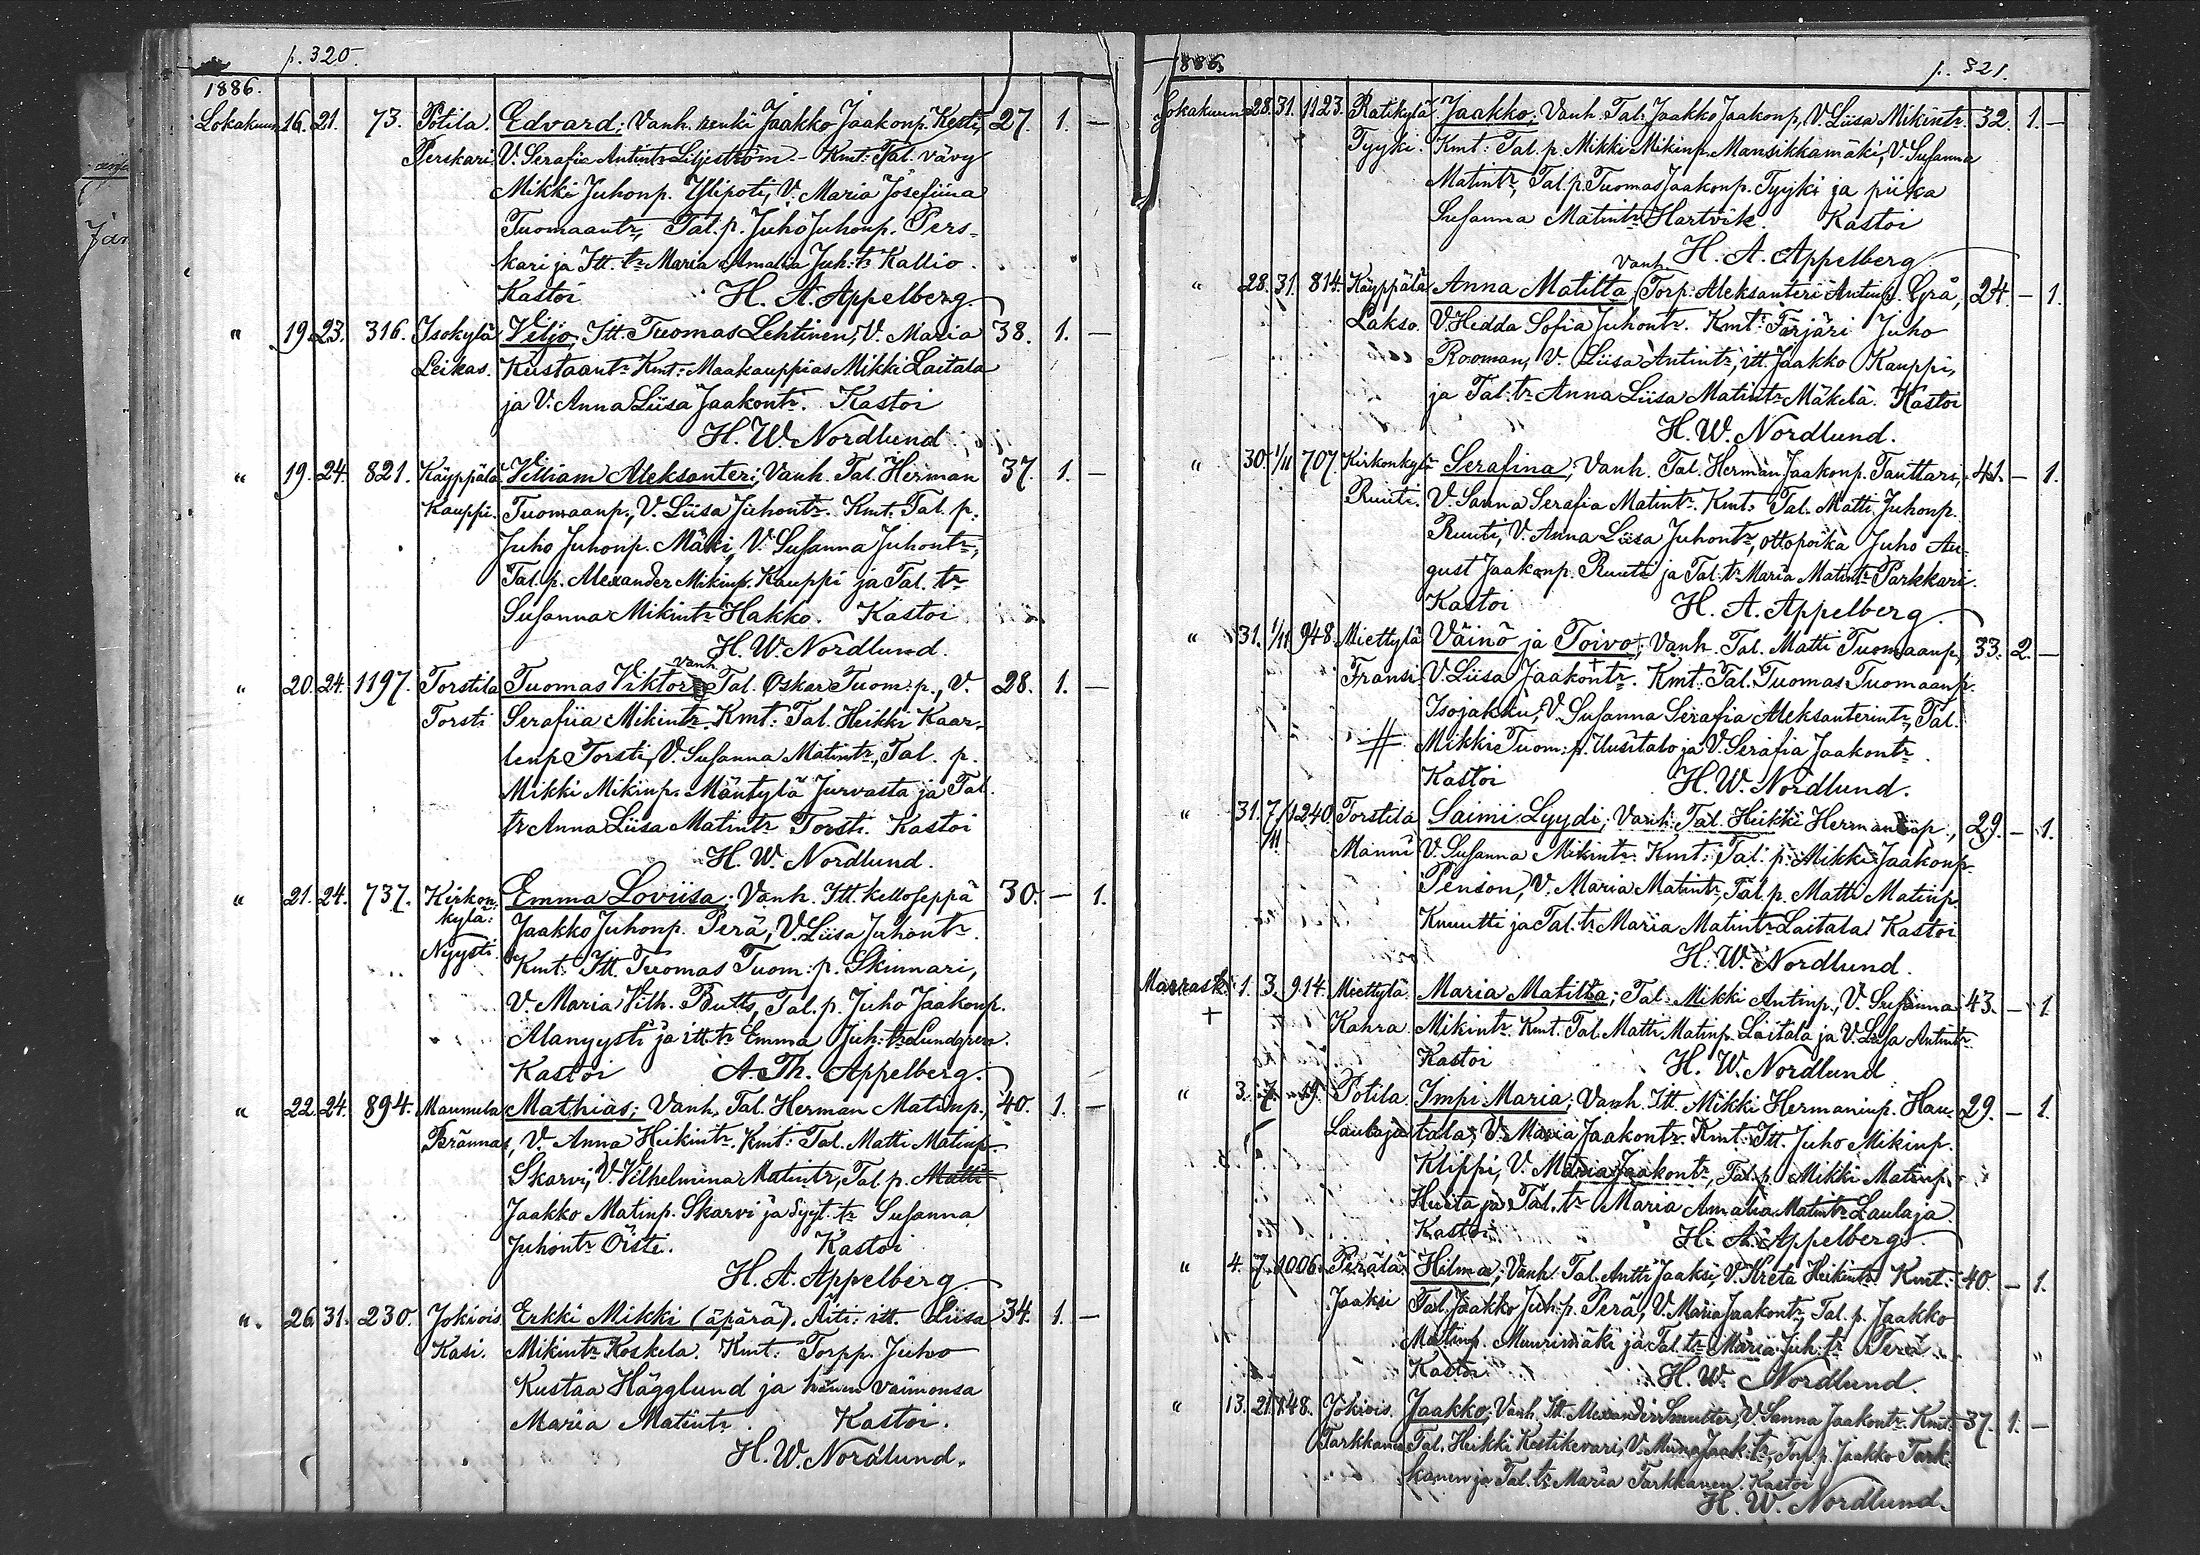 p. 320.
1886.
Lokakuun 16. 21. 73. Potila. Edvard; Vanh. renki Jaakko Jaakonp. Kesti, 27. 1. —
Perskari. V. Serafia Antintr Liljeström. - Kmt: Tal. vävy
Mikki Juhonp. Ylipoti, V. Maria Josefiina
Tuomaantr, Tal. p. Juho Juhonp. Pers-
kari ja Itt. tr Maria Amalia Juh: tr Kallio.
Kastoi H. A. Appelberg.
" 19. 23. 316. Isokylä Viljo; Itt. Tuomas Lehtinen, V. Maria 38. 1. —
Leikas. Kustaantr Kmt: Maakauppias Mikki Laitala
ja V. Anna Liisa Jaakontr. Kastoi
H. W. Nordlund.
" 19. 24. 821. Käyppälä Villiam Aleksanteri; Vanh. Tal. Herman 37. 1. —
Kauppi. Tuomaanp., V. Liisa Juhontr. Kmt. Tal. p.
Juho Juhonp. Mäki, V. Susanna Juhontr,
Tal. p. Alexander Mikinp. Kauppi ja Tal. tr
Susanna Mikintr Hakko. Kastoi
H. W. Nordlund.
" 20. 24. 1197. Torstila Tuomas Viktor; Vanh. Tal. Oskar Tuom: p., V. 28. 1. —
Torsti Serafiia Mikintr. Kmt: Tal. Heikki Kaar-
lenp Torsti, V. Susanna Matintr, Tal. p.
Mikki Mikinp. Mäntylä Jurvasta ja Tal.
tr Anna Liisa Matintr Torsti. Kastoi
H. W. Nordlund.
" 21. 24. 737. Kirkon- Emma Loviisa; Vanh. Itt. kelloseppä 30. — 1.
kylä: Jaakko Juhonp. Perä, V. Liisa Juhontr.
Nyysti. Kmt: Itt. Tuomas Tuom: p. Skinnari,
V. Maria Vilh. Butts, Tal. p. Juho Jaakonp.
Alanyysti ja itt. tr Emma Juh: tr Lundgren.
Kastoi A. Th. Appelberg.
" 22. 24. 894. Maunula Mathias; Vanh. Tal. Herman Matinp. 40. 1. —
Brännas, V. Anna Heikintr. Kmt: Tal. Matti Matinp.
Skarvi, V. Vilhelmina Matintr, Tal. p. Matti
Jaakko Matinp. Skarvi ja Syyt. tr Susanna
Juhontr Öisti. Kastoi
H. A. Appelberg.
". 26. 31. 230. Jokiois Erkki Mikki (äpärä). Äiti: itt. Liisa 34. 1. —
Kasi. Mikintr Koskela. Kmt: Torpp. Juho
Kustaa Hägglund ja hänen vaimonsa
Maria Matintr. Kastoi.
H. W. Nordlund.
1886. p. 321.
Lokakuun 28. 31. 1123. Ratikylä Jaakko; Vanh. Tal. Jaakko Jaakonp, V. Liisa Mikintr. 32. 1. —
Tyyki. Kmt: Tal. p. Mikki Mikinp. Mansikkamäki, V. Susanna
Matintr, Tal. p. Tuomas Jaakonp. Tyyki ja piika
Susanna Matintr Hartvik. Kastoi
H. A. Appelberg
" 28. 31. 814. Käyppälä Anna Matilta; Vanh. Torp. Aleksanteri Antinp. Grå, 24 — 1.
Lakso. V. Hedda Sofia Juhontr. Kmt: Färjäri Juho
Rooman, V. Liisa Antintr, itt. Jaakko Kauppi,
ja Tal: tr Anna Liisa Matintr Mäkelä. Kastoi
H. W. Nordlund.
" 30. 1/11 707. Kirkonkylä Serafina; Vanh. Tal. Herman Jaakonp. Tanttari, 41. — 1.
Ruuti. V. Sanna Serafia Matintr. Kmt: Tal. Matti Juhonp.
Ruuti, V. Anna Liisa Juhontr, ottopoika Juho Au-
gust Jaakonp. Ruuti ja Tal. tr Maria Matintr Parkkari.
Kastoi H. A. Appelberg.
" 31. 1/11 948. Miettylä Väinö ja Toivo +; Vanh. Tal. Matti Tuomaanp, 33. 2. —
Fransi V. Liisa Jaakontr. Kmt: Tal. Tuomas Tuomaanp.
Isojakku, V. Susanna Serafia Aleksanterintr, Tal.
# Mikki Tuom: p. Uusitalo ja V. Serafia Jaakontr.
Kastoi H. W. Nordlund.
" 31. 7/11 1240. Torstila Saimi Lyydi; Vanh. Tal. Heikki Hermanp., 29. — 1.
Manni V. Susanna Mikintr. Kmt: Tal. p. Mikki Jaakonp.
Penson, V. Maria Matintr, Tal. p. Matti Matinp.
Knuutti ja Tal. tr Maria Matintr Laitala Kastoi
H. W. Nordlund.
Marrask. 1. 3. 914. Miettylä Maria Matilta; Tal. Mikki Antinp., V. Susanna 43. — 1.
+ Kahra Mikintr. Kmt. Tal. Matti Matinp. Laitala ja V. Liisa Antintr
Kastoi H. W. Nordlund
" 3. 7. 19. Potila Impi Maria; Vanh. Itt. Mikki Hermaninp. Hau- 29. — 1.
Laulaja tala, V. Maria Jaakontr. Kmt: Itt. Juho Mikinp.
Klippi, V. Maria Jaakontr, Tal. p. Mikki Matinp.
Huita ja Tal. tr Maria Amalia Matintr Laulaja.
Kastoi H. A. Appelberg.
" 4. 7. 1006. Perälä Hilma; Vanh. Tal. Antti Jaaksi, V. Kreta Heikintr. Kmt: 40 — 1.
Jaaksi Tal. Jaakko Juh: p. Perä, V. Maria Jaakontr, Tal. p. Jaakko
Matinp. Muurimäki ja Tal. tr Maria Juh: tr Perä.
Kastoi H. W. Nordlund.
" 13. 21. 148. Jokiois. Jaakko; Vanh. Itt. Alexander Smulter, V. Sanna Jaakontr. Kmt: 37. 1. —
Tarkkanen Tal. Heikki Kestikevari, V. Jaak: tr, Torp. p. Jaakko Tark-
kanen ja Tal. tr Maria Tarkkanen. Kastoi
H. W. Nordlund.